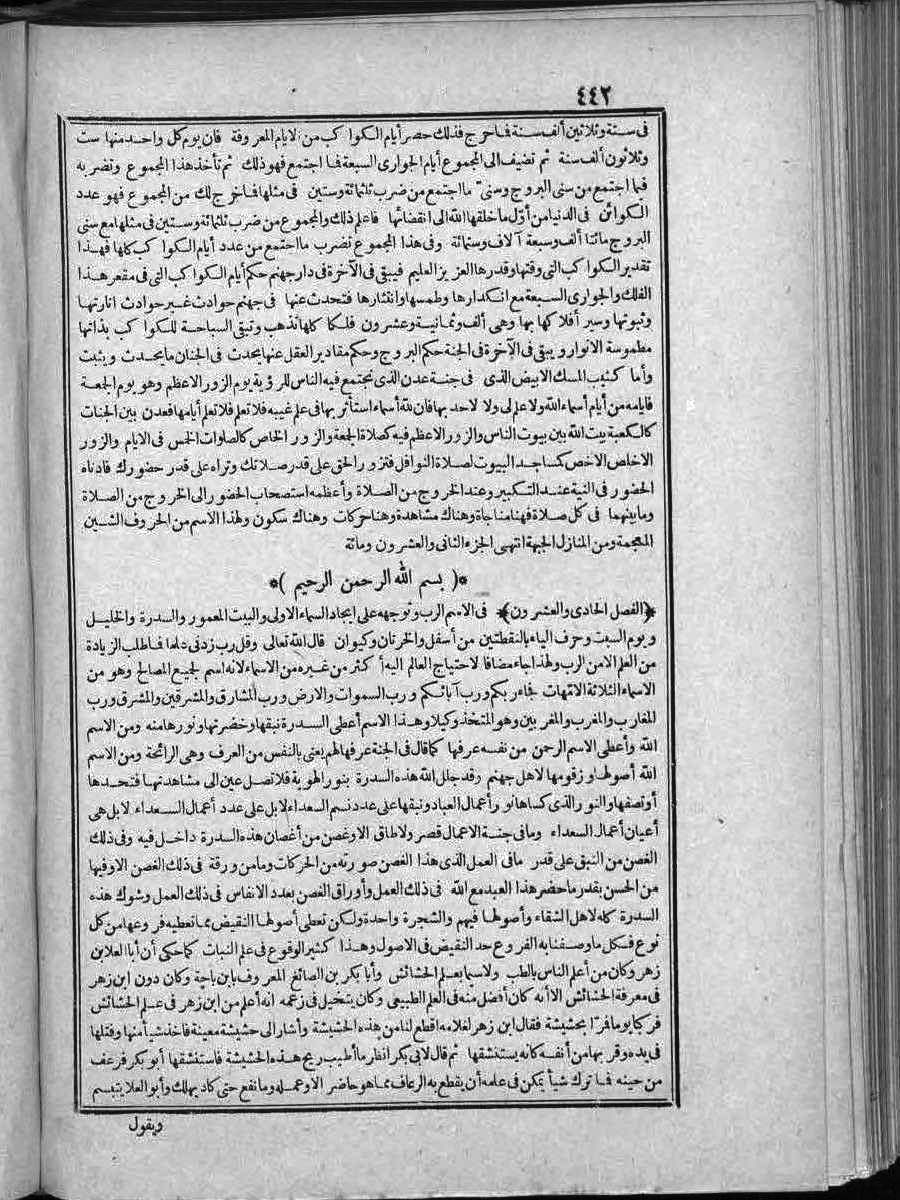 ٤٤٢
فى ستة وثلاثين ألف سنة فما خرج فذلك حصر أيام الكواكب من الايام المعروفة فان يوم كل واحد منها ست
وثلاثون ألف سنة ثم تضيف الى المجموع أيام الجوارى السبعة فما اجتمع فهو ذلك ثم تأخذ هذا المجموع وتضربه
فيما اجتمع من سنى البروج وسنى ما اجتمع من ضرب ثلثمائة وستين فى مثلها فما خرج لك من المجموع فهو عدد
الكوائن فى الدنيا من أول ما خلقها الله الى انقضائها فاعلم ذلك والمجموع من ضرب ثلثمائة وستين فى مثلها مع سنى
البروج مائتا ألف وسبعة آلاف وستمائة وفى هذا المجموع نضرب ما اجتمع من عدد أيام الكواكب كلها فهذا
تقدير الكواكب التى وقتها وقدرها العزيز العليم فيبقى فى الآخرة فى دار جهنم حكم أيام الكواكب التى فى مقعر هذا
الفلك والجوارى السبعة مع انكدارها وطمسها وانتثارها فتحدث عنها فى جهنم حوادث غير حوادث انارتها
وثبوتها وسير أفلاكها بها وهى ألف وثمانية وعشرون فلكا كلها تذهب وتبقى السباحة للكواكب بذاتها
مطموسة الانوار ويبقى فى الآخرة فى الجنة حكم البروج وحكم مقادير العقل عنها يحدث فى الجنان ما يحدث ويثبت
وأما كثيب المسك الابيض الذى فى جنة عدن الذى تجتمع فيه الناس للرؤية يوم الزور الاعظم وهو يوم الجمعة
فايامه من أيام أسماء الله ولا علم لى ولا لاحد بها فان لله أسماء استأثر بها فى علم غيبه فلا تعلم فلا تعلم أيامها فعدن بين الجنات
كالكعبة بيت الله بين بيوت الناس والزور الاعظم فيه كصلاة الجمعة والزور الخاص كالصلوات الخمس فى الايام والزور
الاخص الاخص كمساجد البيوت لصلاة النوافل فتزور الحق على قدر صلاتك وتراه على قدر حضورك فادناه
الحضور فى النية عند التكبير وعند الخروج من الصلاة وأعظمه استصحاب الحضور الى الخروج من الصلاة
وما بينهما فى كل صلاة فهنا مناجاة وهناك مشاهدة وهنا حركات وهناك سكون ولهذا الاسم من الحروف الشين
المعجمة ومن المنازل الجبهة انتهى الجزء الثانى والعشرون ومائة
*( بسم الله الرحمن الرحيم )*
﴿الفصل الحادى والعشرون﴾ فى الاسم الرب وتوجهه على ايجاد السماء الاولى والبيت المعمور والسدرة والخليل
ويوم السبت وحرف الياء بالنقطتين من أسفل والخرتان وكيوان قال الله تعالى وقل رب زدنى علما فما طلب الزيادة
من العلم الا من الرب ولهذا جاء مضافا لاحتياج العالم اليه أكثر من غيره من الاسماء لانه اسم لجميع المصالح وهو من
الاسماء الثلاثة الامهات فجاء ربكم ورب آبائكم ورب السموات والارض ورب المشارق والمشرقين والمشرق ورب
المغارب والمغرب والمغربين وهو المتخذ وكيلا وهذا الاسم أعطى السدرة نبقها وخضرتها ونورها منه ومن الاسم
الله وأعطى الاسم الرحمن من نفسه عرفها كما قال فى الجنة عرفها لهم يعنى بالنفس من العرف وهى الرائحة ومن الاسم
الله أصولها وزقومها لاهل جهنم وقد جلل الله هذه السدرة بنور الهوية فلا تصل عين الى مشاهدتها فتحدها
أو تصفها والنور الذى كساها نور أعمال العباد ونبقها على عدد نسم السعداء لا بل على عدد أعمال السعداء لا بل هى
أعيان أعمال السعداء وما فى جنة الاعمال قصر ولا طاق الا وغصن من أغصان هذه السدرة داخل فيه وفى ذلك
الغصن من النبق على قدر ما فى العمل الذى هذا الغصن صورته من الحركات وما من ورقة فى ذلك الغصن الا وفيها
من الحسن بقدر ما حضر هذا العبد مع الله فى ذلك العمل وأوراق الغصن بعدد الانفاس فى ذلك العمل وشوك هذه
السدرة كله لاهل الشقاء وأصولها فيهم والشجرة واحدة ولكن تعطى أصولها النقيض مما تعطيه فروعها من كل
نوع فكل ما وصفنا به الفروع خذ النقيض فى الاصول وهذا كثير الوقوع فى علم النبات كما حكى أن أبا العلا بن
زهر وكان من أعلم الناس بالطب ولا سيما بعلم الحشائش وأبا بكر بن الصائغ المعروف بابن باجة وكان دون ابن زهر
فى معرفة الحشائش الا أنه كان أفضل منه فى العلم الطبيعى وكان يتخيل فى زعمه انه أعلم من ابن زهر فى علم الحشائش
فركبا يوما فمرا بحشيشة فقال ابن زهر لغلامه اقطع لنا من هذه الحشيشة وأشار الى حشيشة معينة فاخذ شيأ منها وفتلها
فى يده وقربها من أنفه كانه يستنشقها ثم قال لابى بكر انظر ما أطيب ريح هذه الحشيشة فاستنشقها أبو بكر فرعف
من حينه فما ترك شيأ يمكن فى علمه أن يقطع به الرعاف مما هو حاضر الا وعمله وما نفع حتى كاد يهلك وأبو العلا يتبسم
ويقول